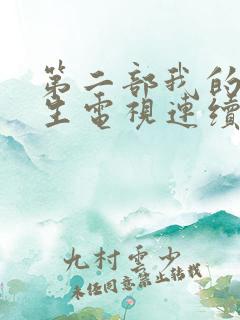 第二部我的
生電視連續
九村雲少
未经同意禁止转载